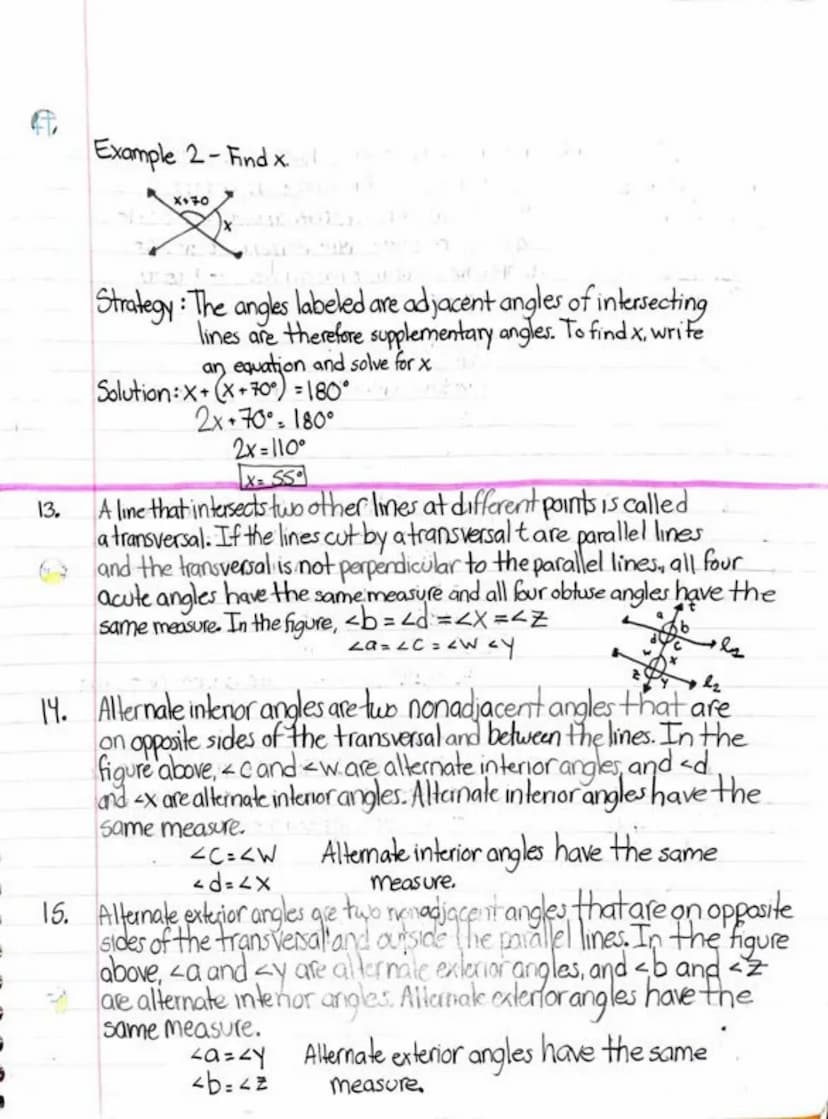 Example 2 - Find x.
x+70
x
Strategy: The angles labeled are adjacent angles of intersecting
lines are therefore supplementary angles. To find x, write
an equation and solve for x
Solution: x + (x + 70°) = 180°
2x + 70° = 180°
2x = 110°
x = 55°
13. A line that intersects two other lines at different points is called
a transversal. If the lines cut by a transversal t are parallel lines
and the transversal is not perpendicular to the parallel lines, all four
acute angles have the same measure and all four obtuse angles have the
same measure. In the figure, ∠b = ∠d = ∠x = ∠z
∠a = ∠c = ∠w ∠y
t
a b
d c
l2
w x
z y
l2
14. Alternate interior angles are two nonadjacent angles that are
on opposite sides of the transversal and between the lines. In the
figure above, ∠c and ∠w are alternate interior angles, and ∠d
and ∠x are alternate interior angles. Alternate interior angles have the
same measure.
∠c = ∠w Alternate interior angles have the same
∠d = ∠x measure.
15. Alternate exterior angles are two nonadjacent angles that are on opposite
sides of the transversal and outside the parallel lines. In the figure
above, ∠a and ∠y are alternate exterior angles, and ∠b and ∠z
are alternate interior angles. Alternate exterior angles have the
same measure.
∠a = ∠y Alternate exterior angles have the same
∠b = ∠z measure.